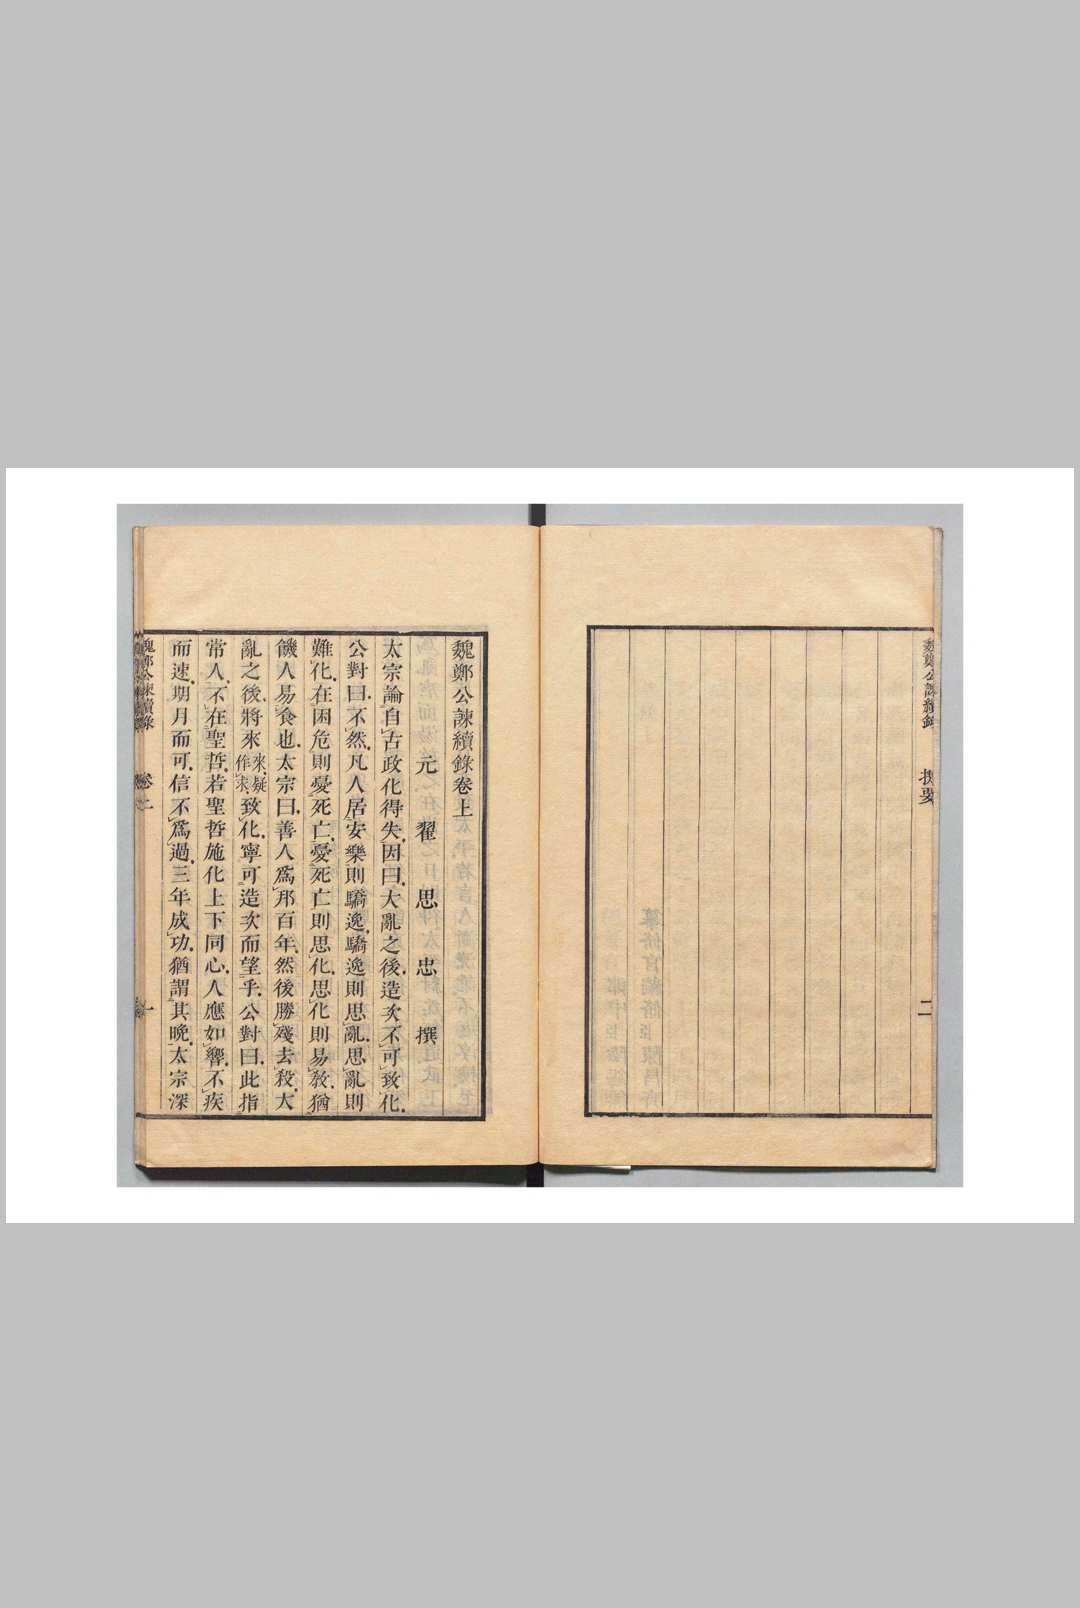 魏鄭公諫續錄
二
魏鄭公諫續錄卷上
元 翟 思 忠 撰
太宗論自古政化得失因曰大亂之後造次不可致化
公對曰不然凡人居安樂則驕逸驕逸則思亂思亂則
難化在困危則憂死亡憂死亡則思化思化則易敎猶
饑人易食也太宗曰善人爲邦百年然後勝殘去殺大
亂之後將來來疑作求致化寧可造次而望乎公對曰此指
常人不在聖哲若聖哲施化上下同心人應如響不疾
而速期月而可信不爲過三年成功猶謂其晚太宗深